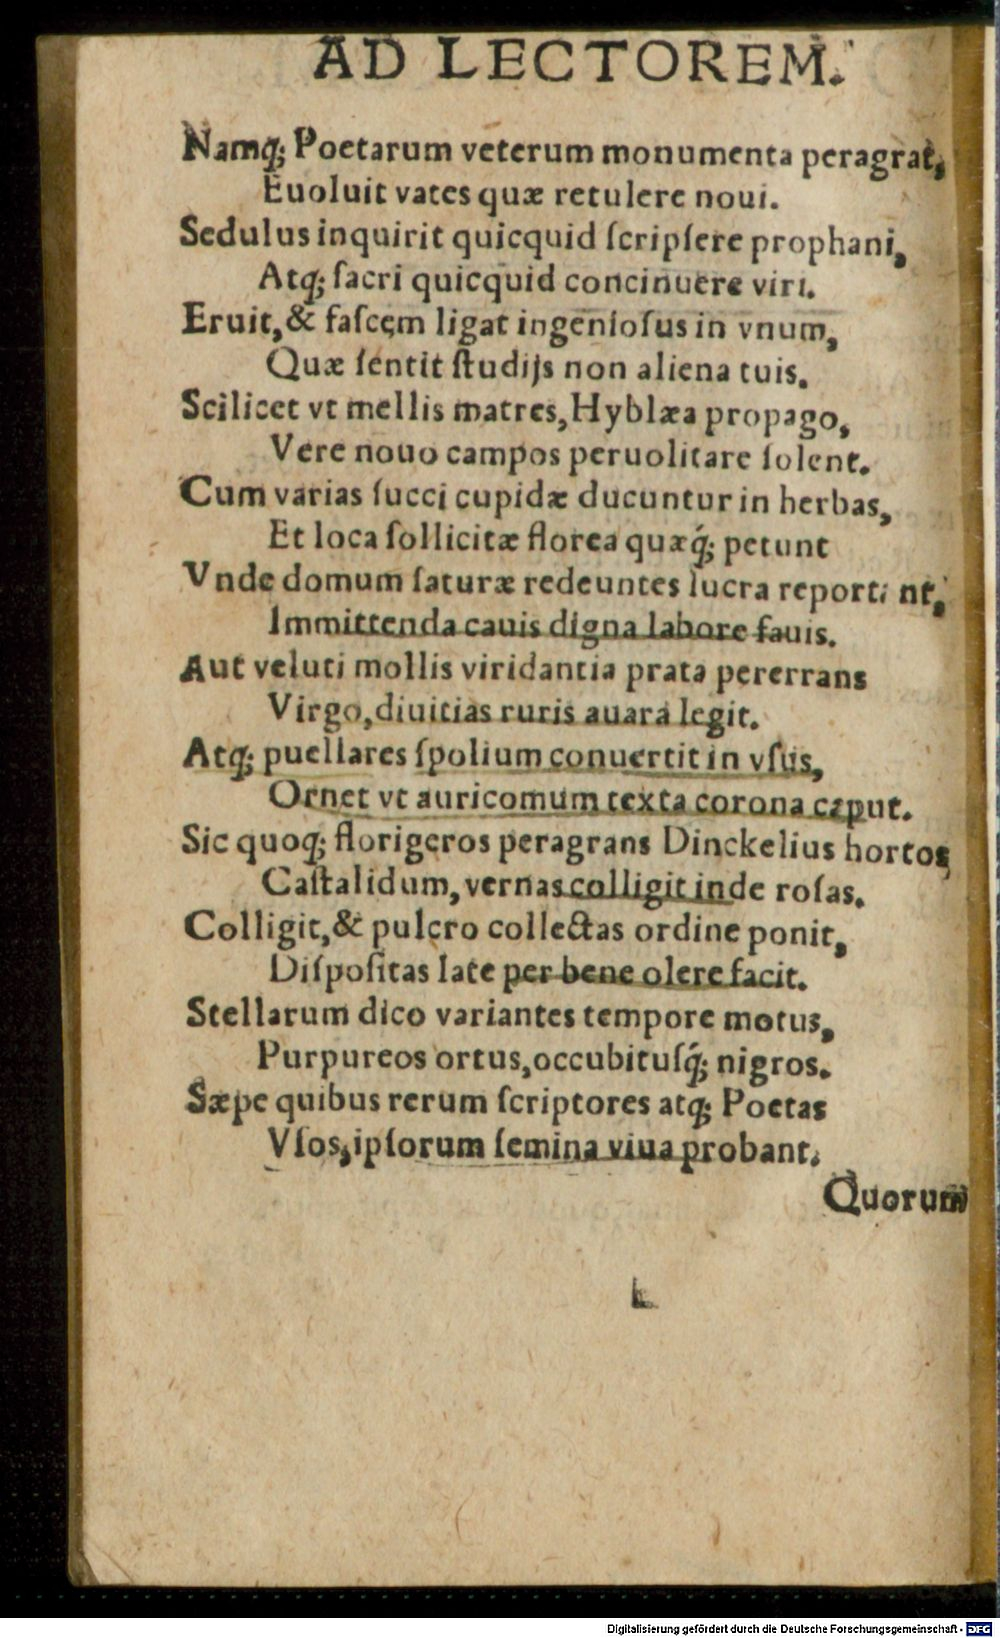 AD LECTOREM.
Namq́; Poetarum veterum monumenta peragrat,
Euoluit vates quæ retulere noui.
Sedulus inquirit quicquid ſcripſere prophani,
Atq́; ſacri quicquid concinuere viri.
Eruit, & faſcem ligat ingenioſus in vnum,
Quæ ſentit ſtudijs non aliena tuis.
Scilicet vt mellis matres, Hyblæa propago,
Vere nouo campos peruolitare ſolent.
Cum varias ſucci cupidæ ducuntur in herbas,
Et loca ſollicitæ florea quæq́; petunt
Vnde domum ſaturæ redeuntes lucra report nt,
Immittenda cauis digna labore fauis.
Aut veluti mollis viridantia prata pererrans
Virgo, diuitias ruris auara legit.
Atq́; puellares ſpolium conuertit in vſus,
Ornet vt auricomum texta corona caput.
Sic quoq́; florigeros peragrans Dinckelius hortos
Caſtalidum, vernas colligit inde roſas.
Colligit, & pulcro collectas ordine ponit,
Diſpoſitas late per bene olere facit.
Stellarum dico variantes tempore motus,
Purpureos ortus, occubituſq́; nigros.
Sæpe quibus rerum ſcriptores atq́; Poetas
Vſos, ipſorum ſemina viua probant.
Quorum
Digitalisierung gefördert durch die Deutsche Forschungsgemeinschaft - DFG